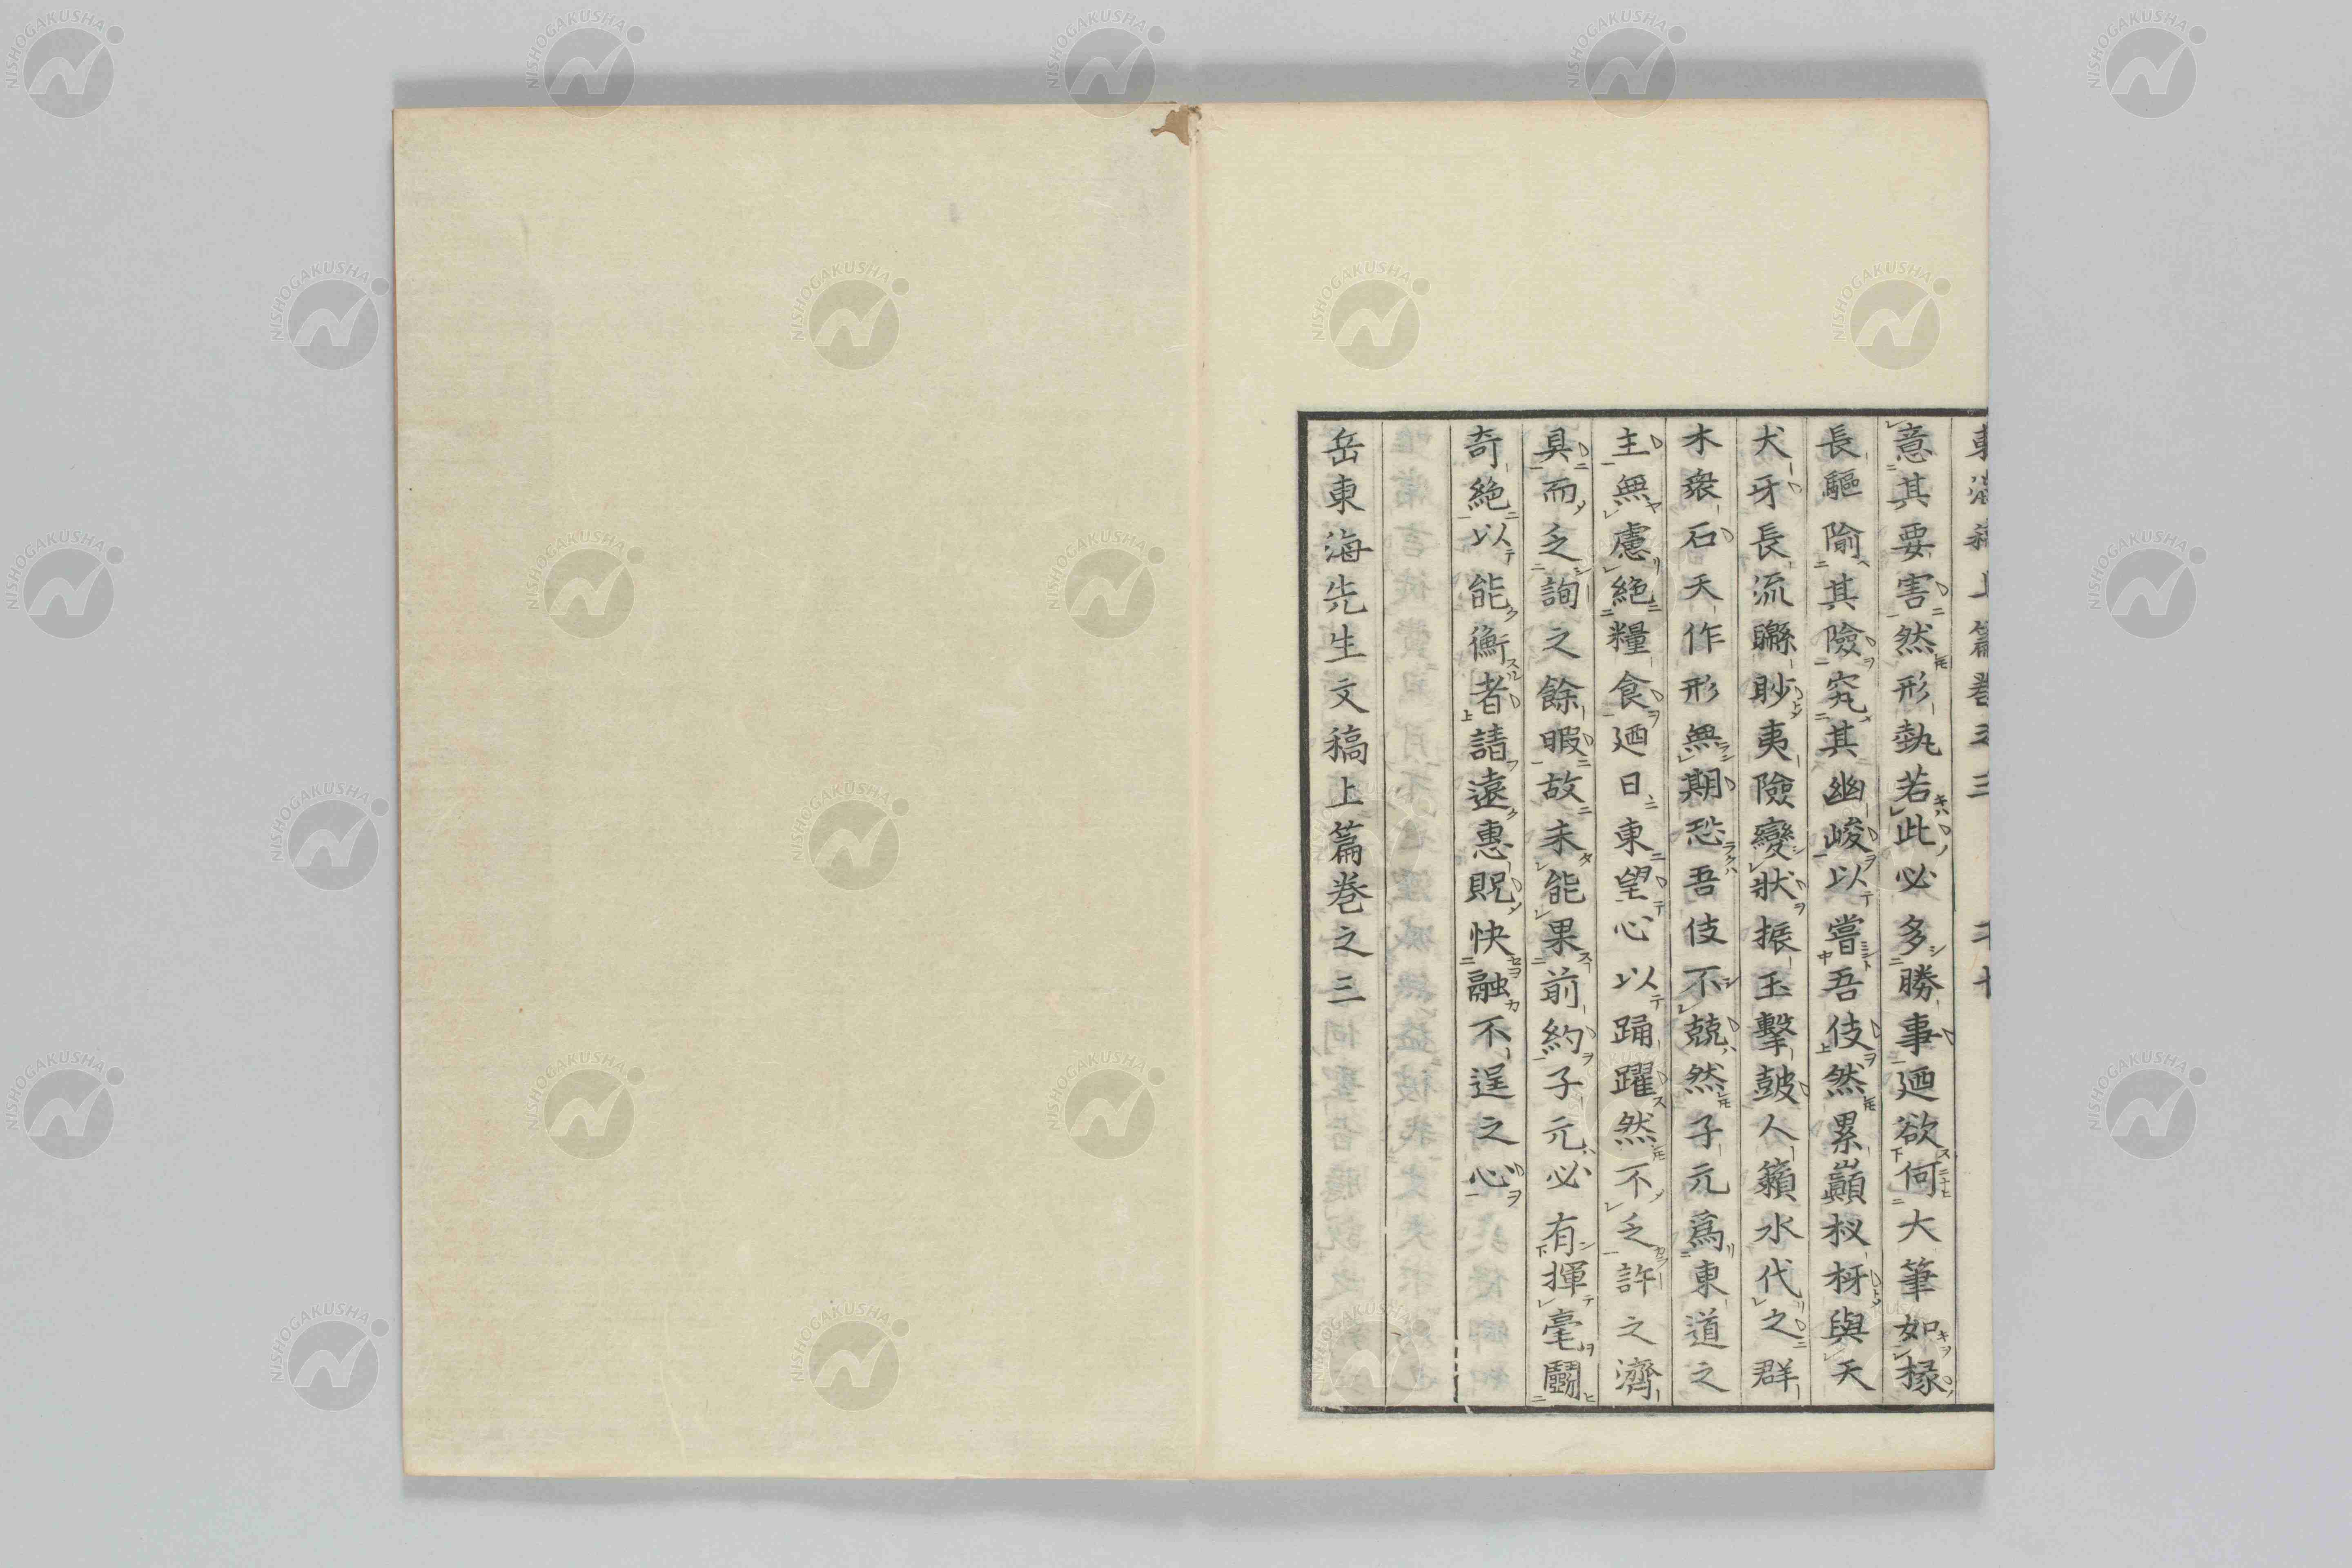 意其要害然形埶若此必多勝事廼欲何大筆如椽
長驅隃其險究其幽峻以嘗吾伎然累巓杈枒與天
犬牙長流緜眇夷險變狀振玉擊鼓人籟水代之群
木衆石天作形無期恐吾伎不兢然子元爲東道之
主無慮絶糧食廼日東望心以踊躍然不乏許之濟
具而乏詢之餘暇故未能果前約子元必有揮毫鬭
奇絶以能衡者請遠惠貺快融不逞之心
岳東海先生文稿上篇巻之三
NISHOGAKUSHA